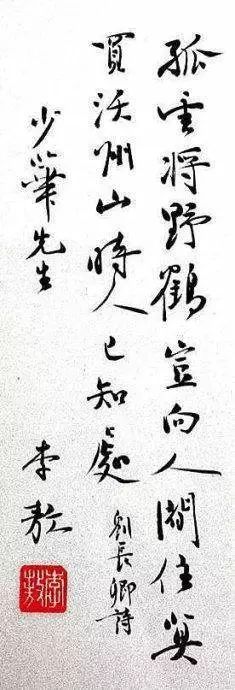 孤雲将野鶴豈向人間住莫
買沃州山時人已知處
劉長卿詩
少華先生
李敖
李敖